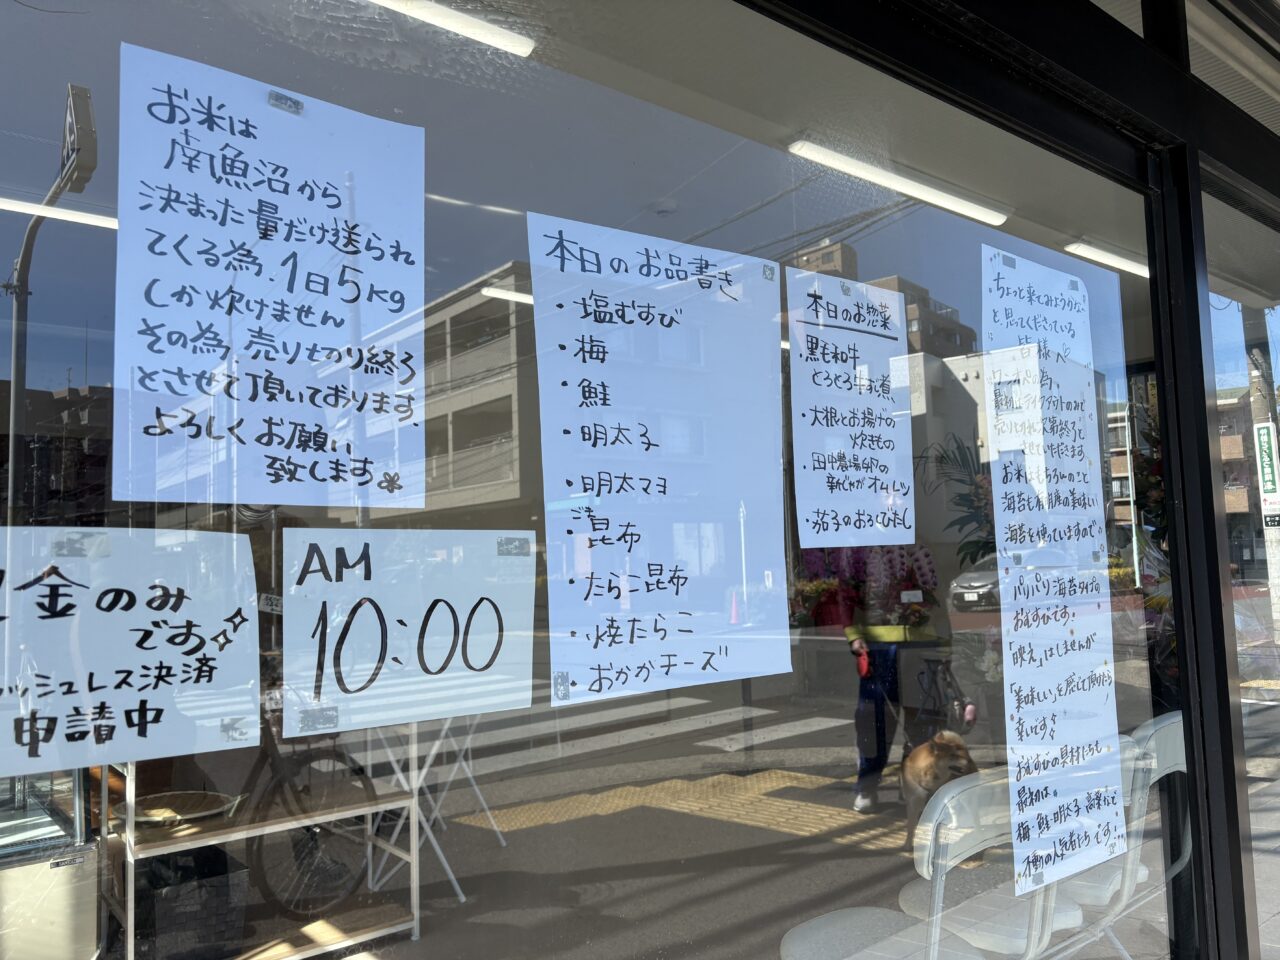 お米は
南魚沼から
決まった量だけ送られ
てくる為、1日5kg
しか炊けません
その為、売り切り終了
とさせて頂いております。
よろしくお願い
致します
金のみ
です
ッシュレス決済
申請中
AM
10:00
本日のお品書き
・塩むすび
・梅
・鮭
・明太子
・明太マヨ
・昆布
・たらこ昆布
・焼たらこ
・おかかチーズ
本日のお惣菜
・黒毛和牛
とろとろ牛すじ煮
・大根とお揚げの
炊きもの
・田中農場卵の
新じゃがオムレツ
・茄子のおろしびたし
ちょっと来てみようかな
と思ってくださっている
皆様へ
ワンオペの為、
最初はテイクアウトのみで
売り切れ次第終了と
させていただきます。
お米はもちろんのこと
海苔も有明産の美味しい
海苔を使っていますので
パリパリ海苔タイプの
おむすびです!
「映え」はしませんが
「美味しい」を感じて頂けたら
幸いです♪
おむすびの具材たちも
最初は、
梅・鮭・明太子・高菜など
不動の人気者たちです!